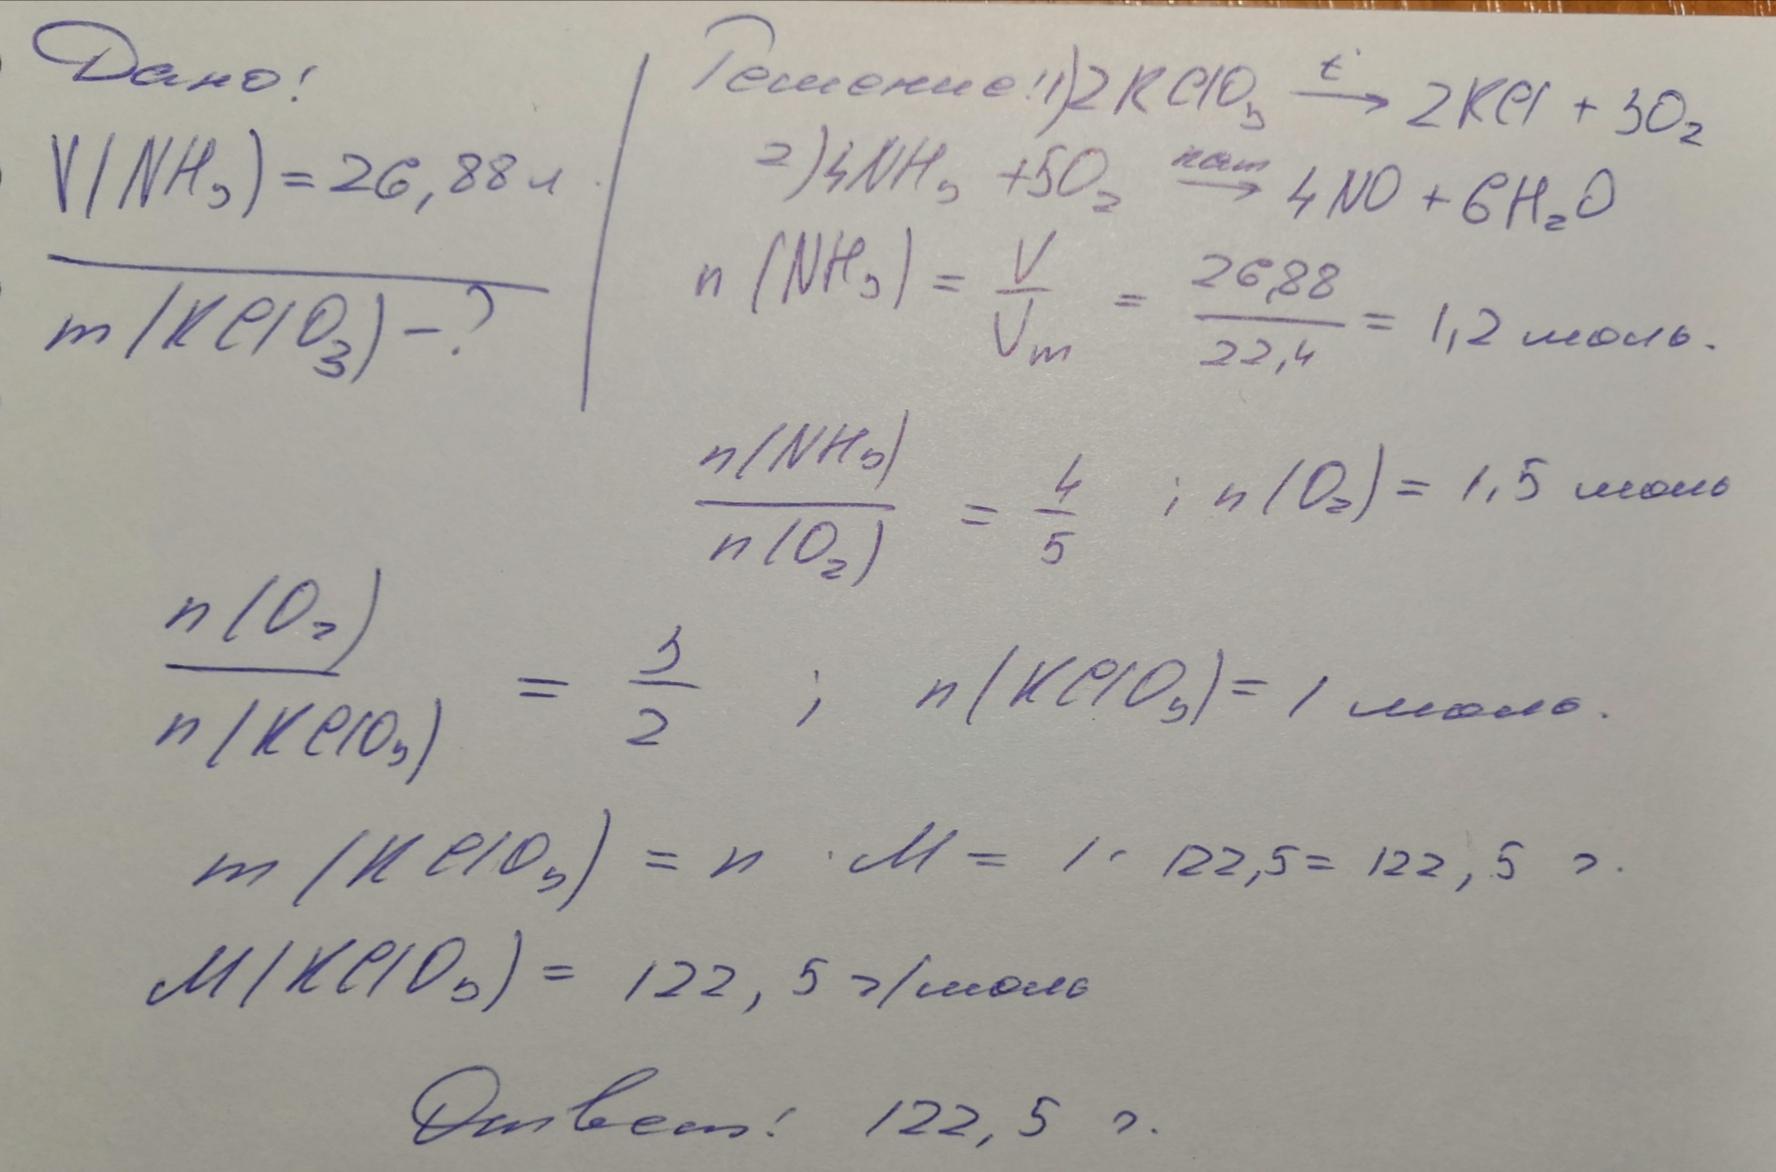 Дано:
V(NH₃) = 26,88 л
m(KClO₃) – ?
Решение: 1) 2KClO₃ →(t°) 2KCl + 3O₂
2) 4NH₃ + 5O₂ →(кат) 4NO + 6H₂O
n(NH₃) = V/Vm = 26,88/22,4 = 1,2 моль.
n(NH₃)/n(O₂) = 4/5 ; n(O₂) = 1,5 моль
n(O₂)/n(KClO₃) = 3/2 ; n(KClO₃) = 1 моль.
m(KClO₃) = n · M = 1 · 122,5 = 122,5 г.
M(KClO₃) = 122,5 г/моль
Ответ: 122,5 г.